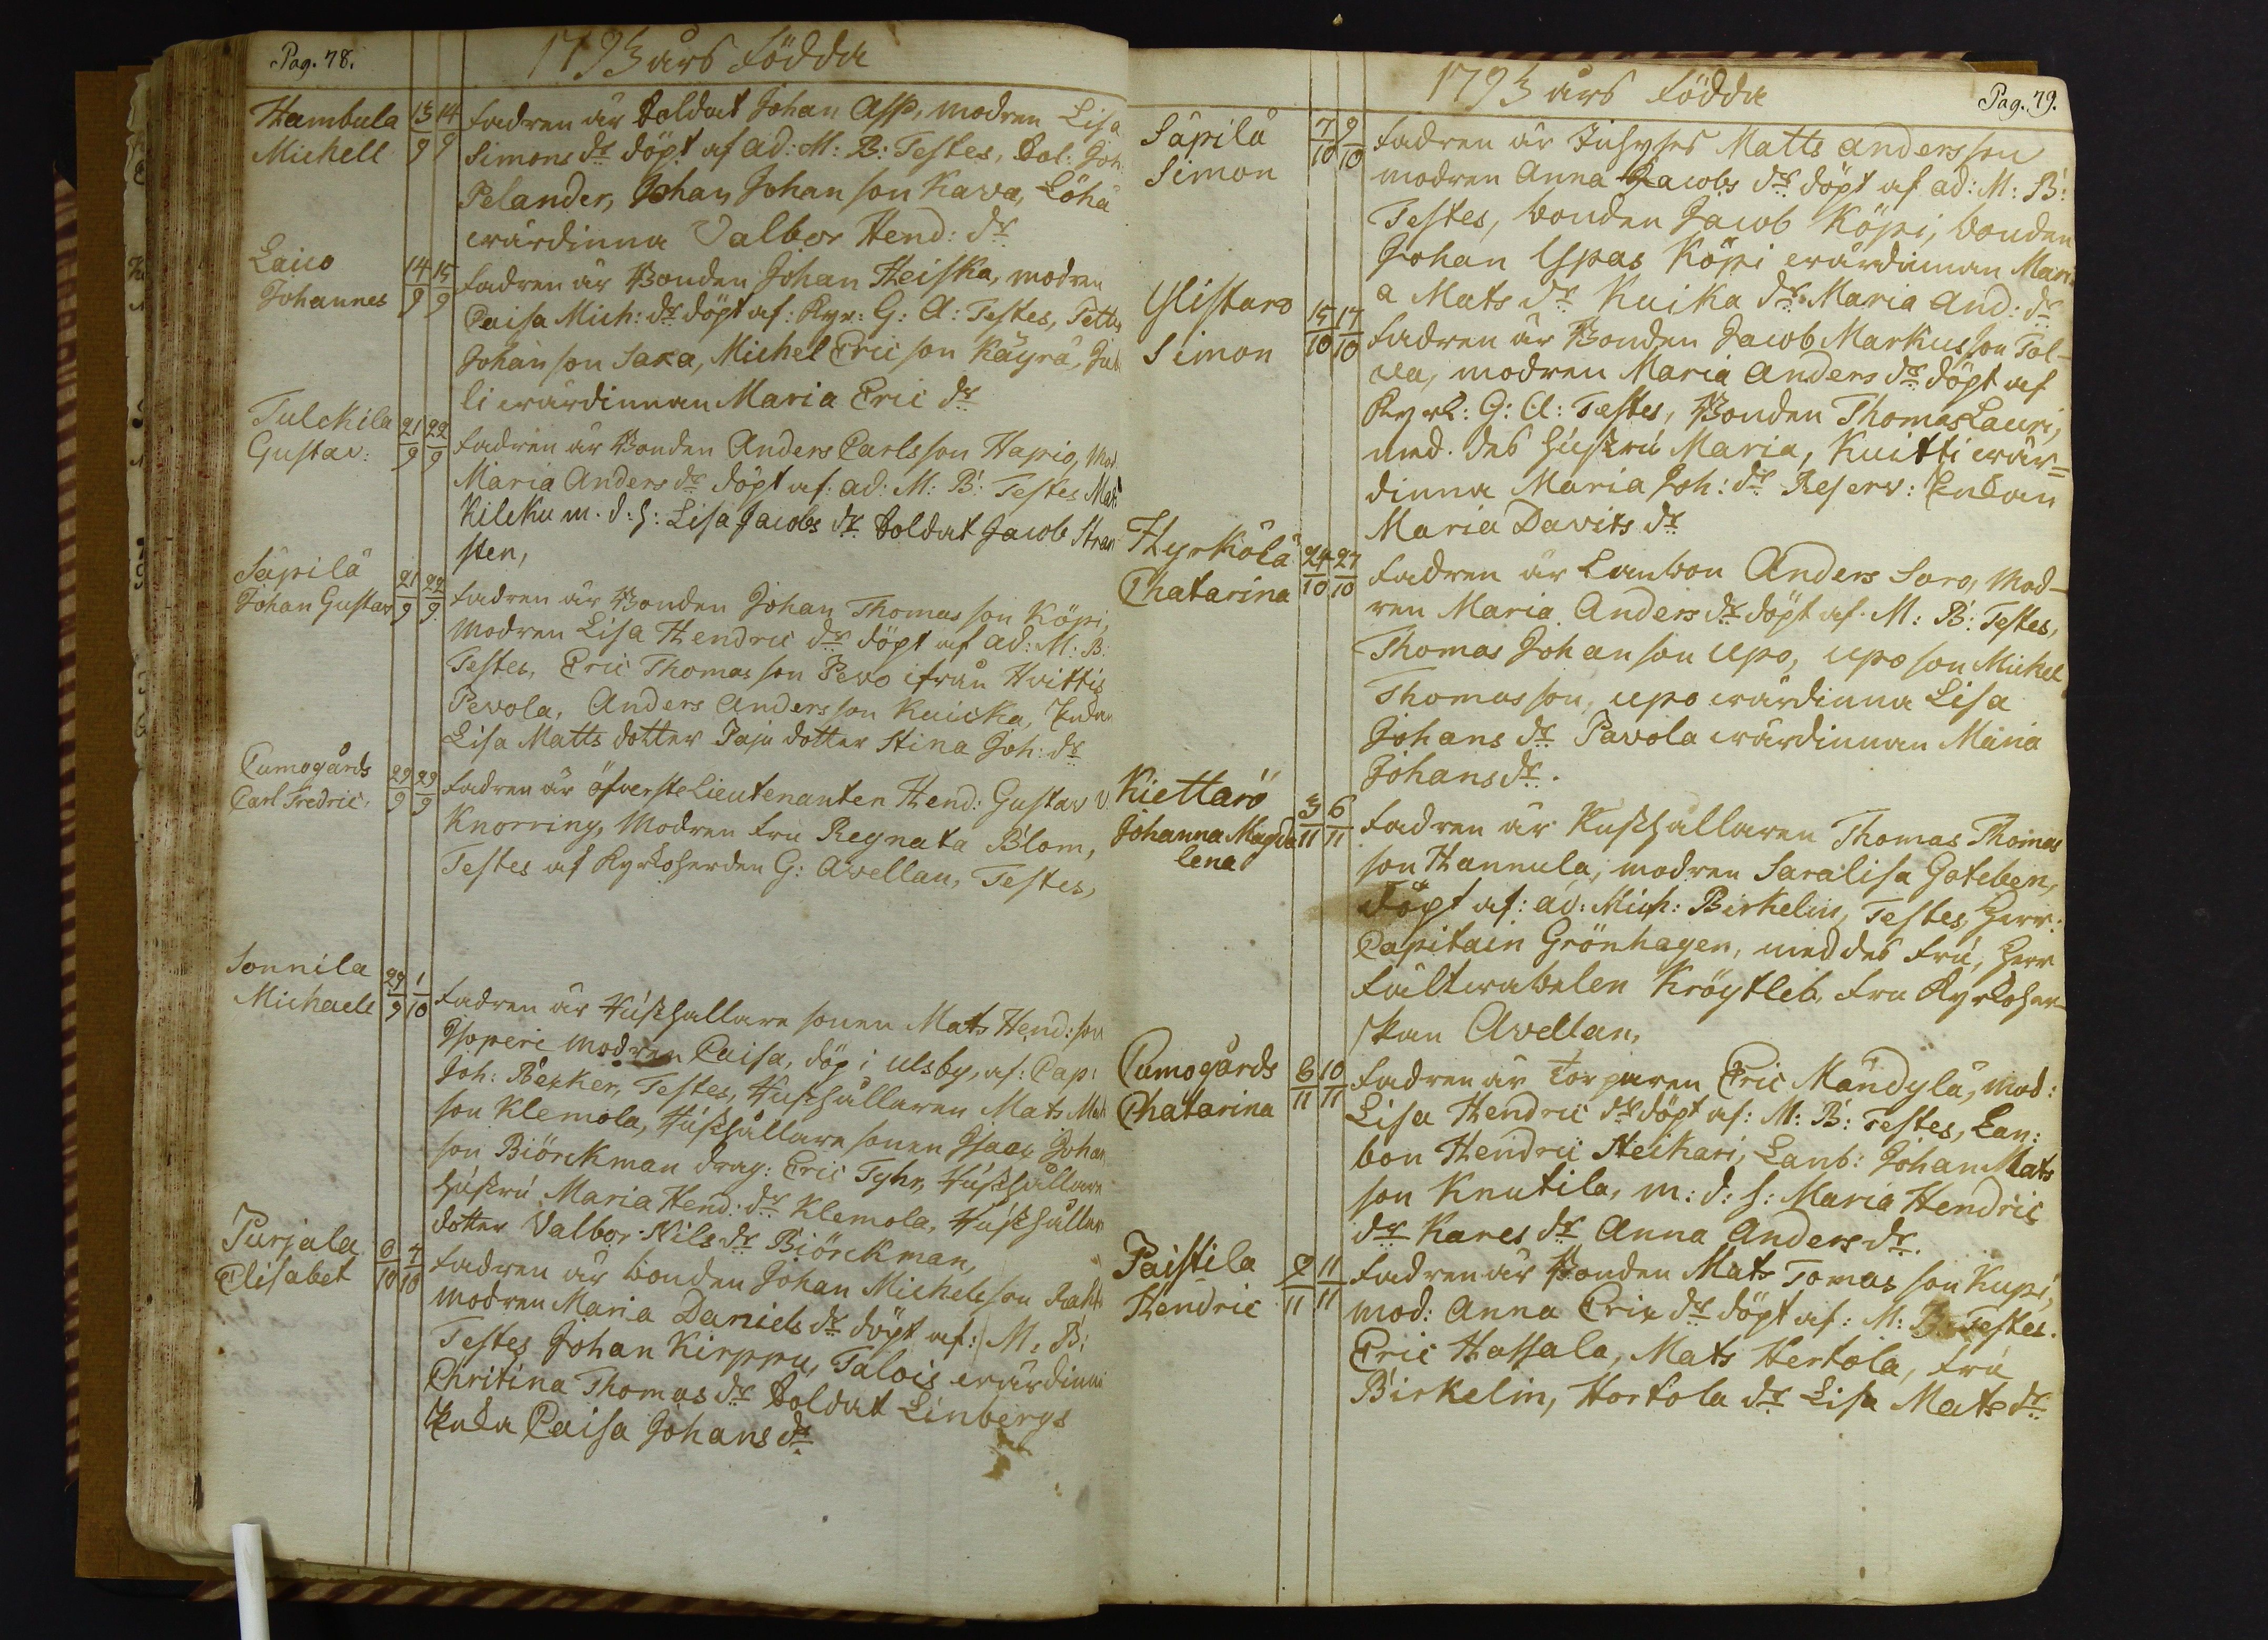 Pag. 78.
1793 års Födda
Hambula 13/9 14/9 Fadren är Soldat Johan Asp, modren Lisa
Michell Simons dr döpt af ad: M: B: Testes, Sol: Joh:
Pelander, Johan Johan son Kawa, Löhä
wärdinna Valbor Hend: dr
Laico 14/9 15/9 Fadren är Bonden Johan Heiska, modren
Johannes Caisa Mich: dr döpt af: Kyr: G: A: Testes, Petter
Johan son Saxa, Michel Eric son Käyrä,
li wärdinnan Maria Eric dr
Tulckila 21/9 22/9 Fadren är Bonden Anders Carlsson Hapio, Mod
Gustav: Maria Anders dr döpt af: ad: M: B: Testes Mats
Kilcku m. d: h: Lisa Jacobs dr Soldat Jacob Stran
sten,
Säpilä 21/9 22/9 Fadren är Bonden Johan Thomas son Köpi,
Johan Gustav modren Lisa Hendric dr döpt af ad: M: B:
Testes, Eric Thomas son Pevo ifrån Hvittis
Pevola, Anders Anders son Kuicka, Enkan
Lisa Matts dotter Paju dotter Stina Joh: dr
Cumogårds 29/9 29/9 Fadren är öfverste Lieutenanten Hend: Gustav v.
Carl Fredric, Knorring, Modren Fru Regnata Blom,
Testes af Kyrkoherden G: Avellan, Testes,
Sonnila 29/9 1/10 Fadren är Husshållare sonen Mats Hend: son
Michaell Isoperi modren Caisa, döp i Ulsby, af: Cap:
Joh: Bexker, Testes, Husshållaren Mats Mats
son Klemola, Husshållare sonen Isaac Johan
son Biörckman drag: Eric Tyhr, Husshållare
hustru Maria Hend: dr Klemola, Husshållare
dotter Valbor Nils dr Biörckman,
Purjala 4/10 Fadren är bonden Johan Michels son
Elisabet modren Maria Daniels dr döpt af: M: B:
Testes Johan Kirppu, Talois wärdinna
Chritina Thomas dr Soldat Linbergs
Enka Caisa Johans dr
1793 års Födda
Pag. 79.
Säpilä 7/10 9/10 Fadren är Inhyses Matts anders son
Simon modren Anna Jacobs dr döpt af ad: M: B:
Testes, bonden Jacob Köpi, bonden
Johan Uspas Köpi wärdinnan Mari
a Mats dr Kuika dr Maria And: dr
Ylistaro 15/10 17/10 Fadren är Bonden Jacob Markusson Tol-
Simon va, modren Maria Anders dr döpt af
Kyrk: G: A: Testes, Bonden Thomas Lauri,
med des hustru Maria, Kuitti wär=
dinna Maria Joh: dr Reserv: Enkan
Maria Davits dr
Hyrkölä 24/10 27/10 Fadren är Lanbon Anders Soro, Mod-
Chatarina ren Maria Anders dr döpt af M: B: Testes,
Thomas Johan son Upo, Upo son Michel
Thomas son, Upo wärdinna Lisa
Johans dr Pavola wärdinnan Maria
Johans dr.
Kiettarö 3/11 6/11 Fadren är Husshållaren Thomas Thomas
Johanna Magda son Hannula, modren Saralisa Goteben,
lena döpt af: ad: Mich: Birkelin, Testes, Herr:
Capitain Grönhagen, med des Fru, Herr
Fältwäbelen Kröytleb, Fru Kyrkoher-
skan Avellan,
Cumogårds 6/11 10/11 Fadren är Torparen Eric Mändylä, mod:
Chatarina Lisa Hendric dr döpt af: M: B: Testes, Lan:
bon Hendric Heikari, Lanb: Johan Mats
son Knutila, m: d: h: Maria Hendric
dr Kares dr Anna Anders dr.
Paistila 9/11 11/11 Fadren är Bonden Mats Tomas son Kupi,
Hendric mod: Anna Eric dr döpt af: M: B: Testes.
Eric Hassala, Mats Hertola, Fru
Birkelin, Hortola dr Lisa Mats dr